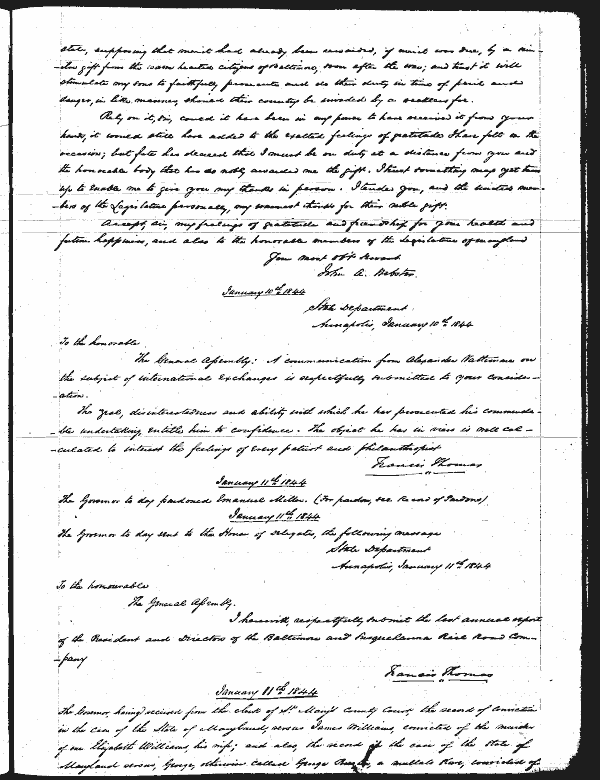 state, supposing that merit had already been rewarded, if merit was due, by a sim-
-ilar gift from the warm hearted citizens of Baltimore, soon after the war; and trust it will
stimulate my sons to faithfully, persevere and do their duty in time of peril and
danger, in like manner, should their country be invaded by a ruthless foe.
Rely on it, Sir, could it have been in my power to have received it from your
hands, it would still have added to the exalted feelings of gratitude I have felt on the
occasion; but fate has decreed that I must be on duty at a distance from you and
the honorable body that has so nobly awarded me the gift. I trust something may yet turn
up to enable me to give you my thanks in person. I tender you, and the mem-
-bers of the Legislature personally, my warmest thanks for their noble gift.
Accept, sir, my feelings of gratitude and friendship for your health and
future happiness, and also to the honorable members of the Legislature of Maryland
Your most obt Servant
John A. Webster.
January 10th 1844
State Department.
Annapolis, January 10th 1844
To the honorable
The General Assembly: A communication from Alexander Vattemare on
the subject of international exchanges is respectfully submitted to your consider-
-ation.
The zeal, disinterestedness and ability with which he has prosecuted his commenda-
-ble undertaking entitles him to confidence. The object he has in view is well cal-
-culated to interest the feelings of every patriot and philanthropist
Francis Thomas
January 11th 1844
The Governor to day pardoned Emanuel Miller. (For pardon, see Record of Pardons)
January 11th 1844
The Governor to day sent to the House of Delegates, the following message
State Department
Annapolis, January 11th 1844
To the honourable
The General Assembly.
I herewith, respectfully submit the last annual report
of the President and Directors of the Baltimore and Susquehanna Rail Road Com-
-pany
Francis Thomas
January 11th 1844
The Governor, having received from the Clerk of St. Mary's County Court, the record of conviction
in the case of the State of Maryland, versus James Williams, convicted of the murder
of one Elizabeth Williams, his wife; and also, the record of the case of the State of
Maryland versus, George, otherwise called George, a mulatto slave, convicted of